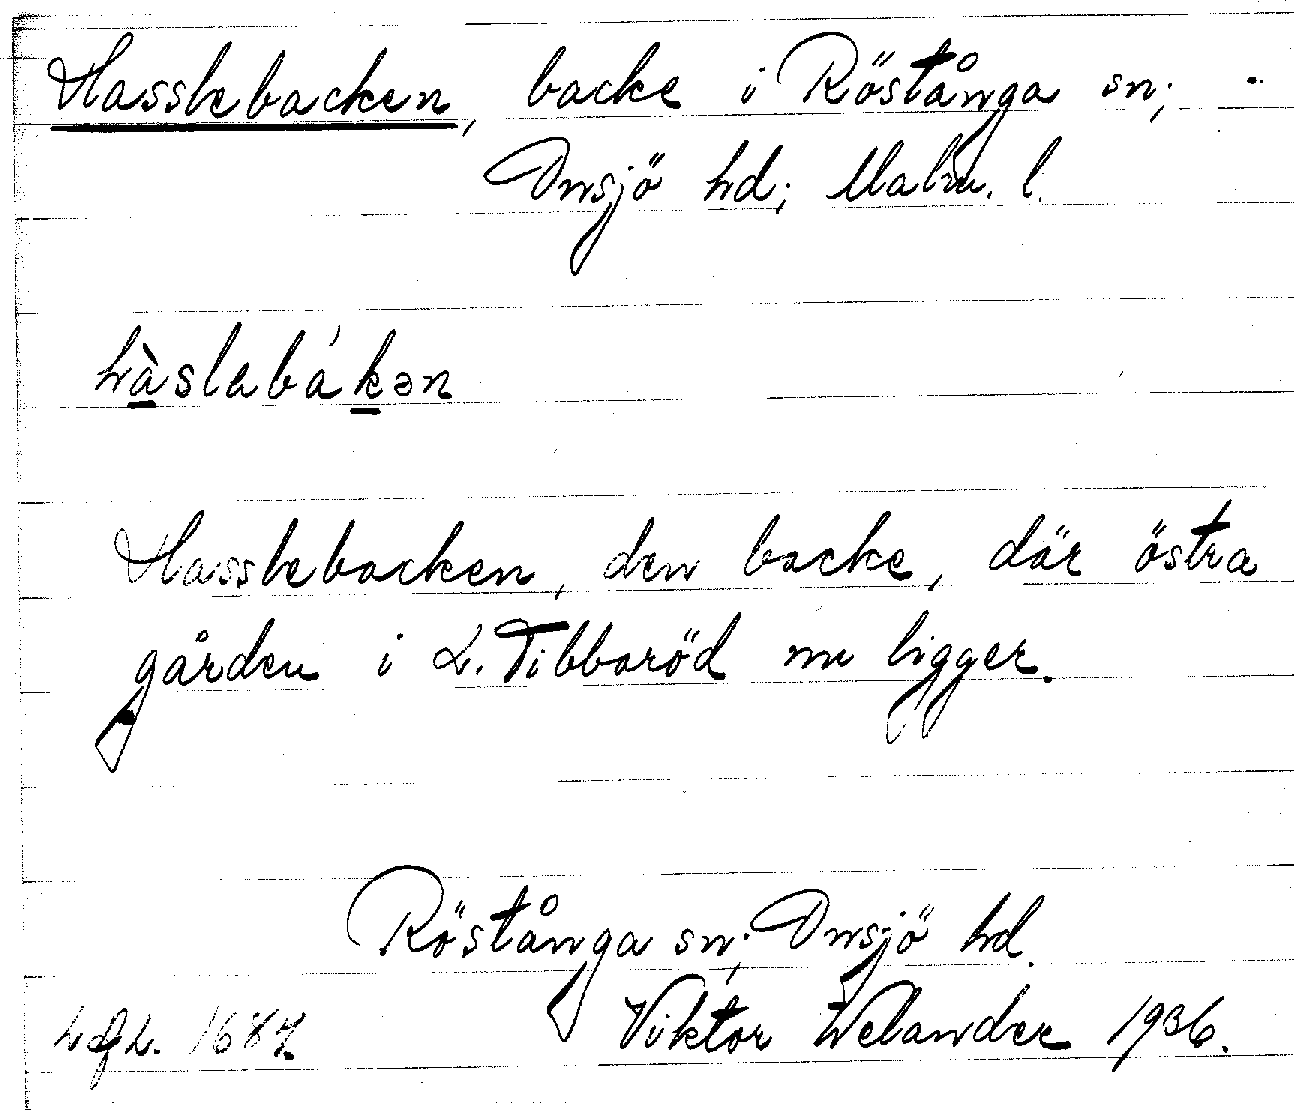 Hasslebacken, backe i Röstånga sn;
Onsjö hd; Malm. l.
hàslebákən
Hasslebacken, den backe, där östra
gården i L. Tibbaröd nu ligger.
Röstånga sn; Onsjö hd.
Viktor Welander 1936.